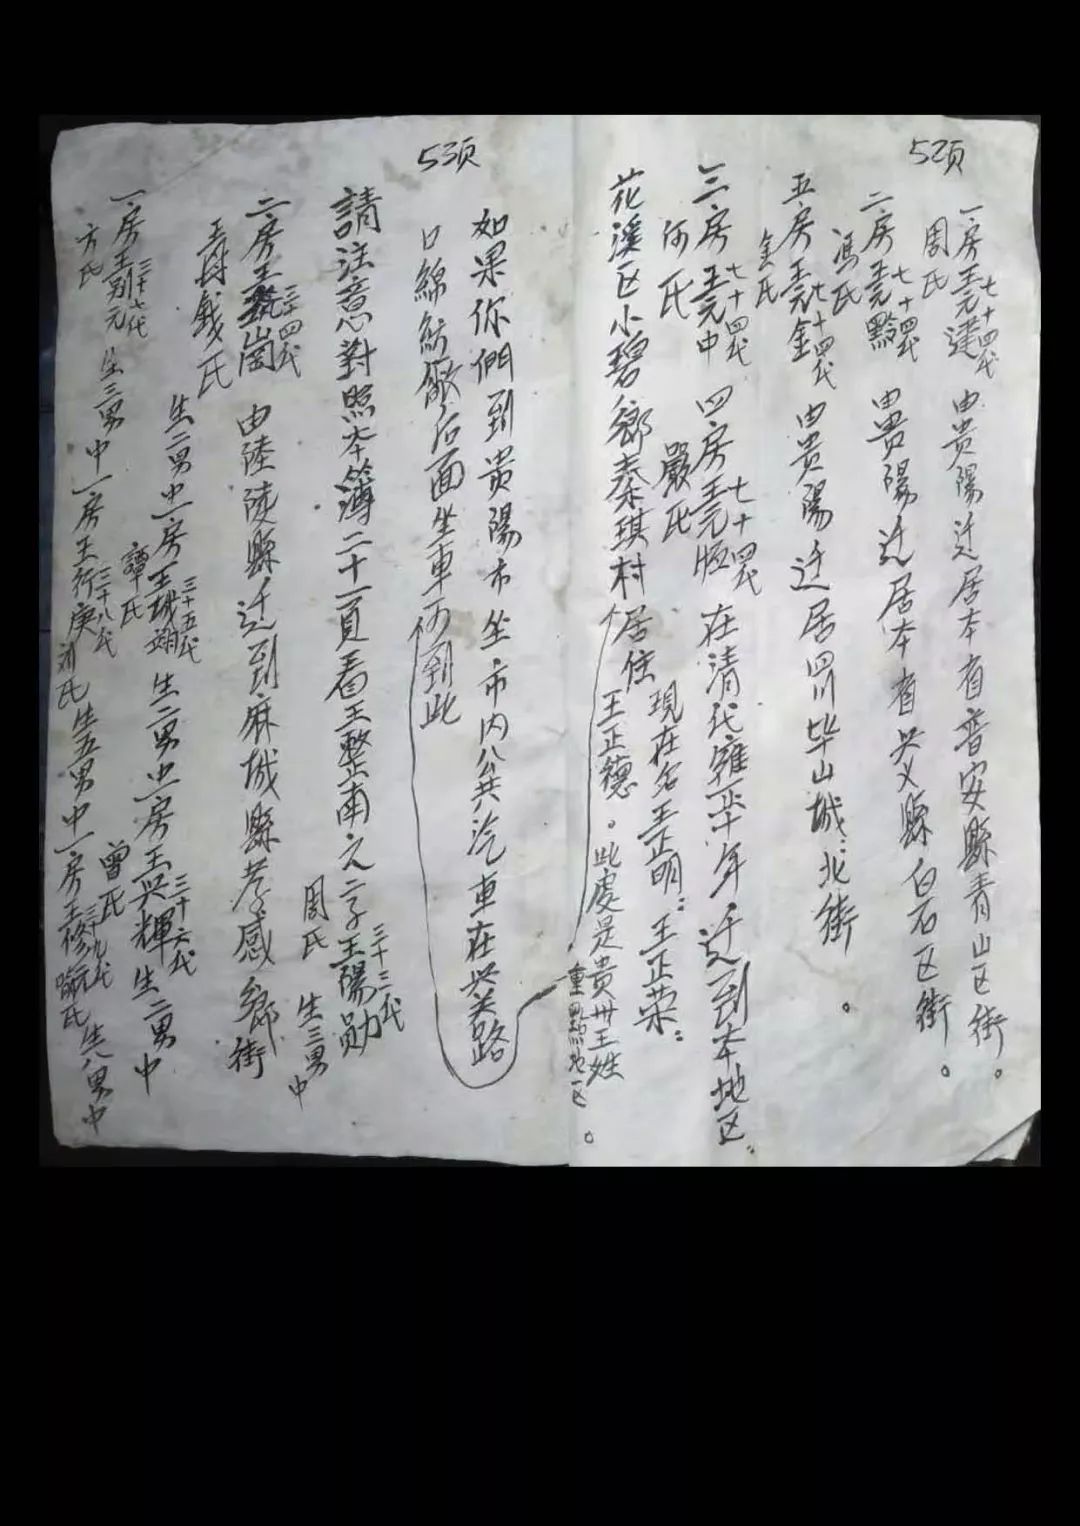 52页
一房王元達 七十四代
周氏
由貴陽迁居本省普安縣青山区街。
二房王元黔 七十四代
馮氏
由貴陽迁居本省兴义縣白石区街。
五房王元金 七十四代
金氏
由貴陽迁居四川毕山城北街。
三房王元中 七十四代
何氏
四房王元恒 七十四代
嚴氏
在清代雍正年迁到本地区
花溪区小碧鄉秦琪村居住
現在名王正明:王正荣:
王正德。此處是貴州王姓
重點地区。
53页
如果你們到貴陽市坐市内公共汽車在兴关路
口絲紡廠后面坐車可到此
請注意對照本簿二十一頁看王整南之二子王陽勋 三十三代
周氏
生三男中
二房王 崗 三十四代
錢氏
由陸陵縣迁到麻城縣孝感鄉街
生二男中一房王城 三十五代
譚氏
生二男中一房王兴輝 三十六代
曾氏
生二男中
一房王别元 三十七代
方氏
生三男中一房王行庚 三十八代
氏生五男中一房王修 三十九代
氏生八男中